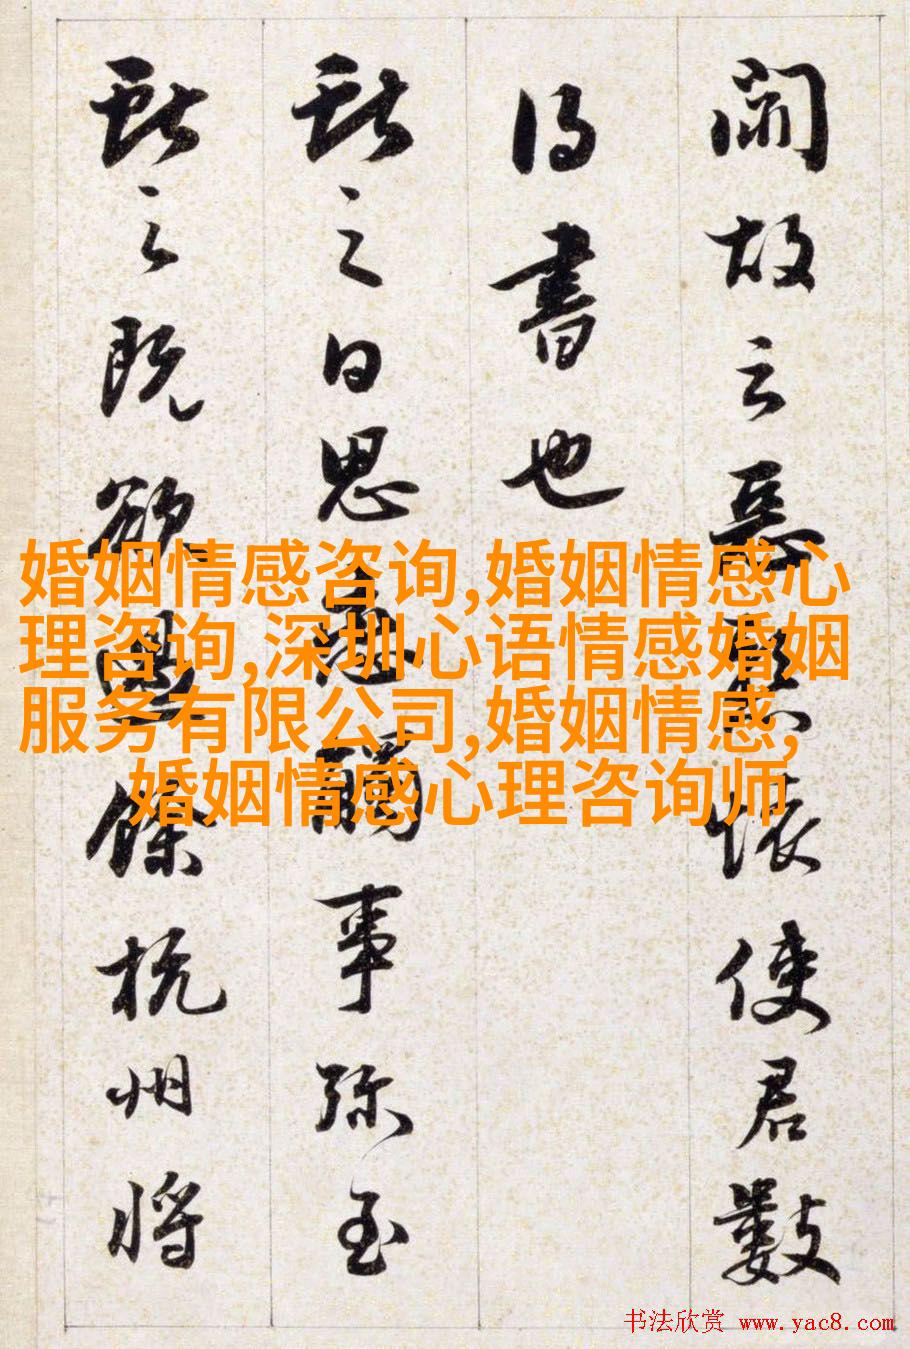 故云惡懸懷使君數
得書也
獻之日思戀觸事彌至
獻之既欲過餘杭州將
婚姻情感咨询,婚姻情感心
理咨询,深圳心语情感婚姻
服务有限公司,婚姻情感,
婚姻情感心理咨询师
书法欣赏 www.yac8.com